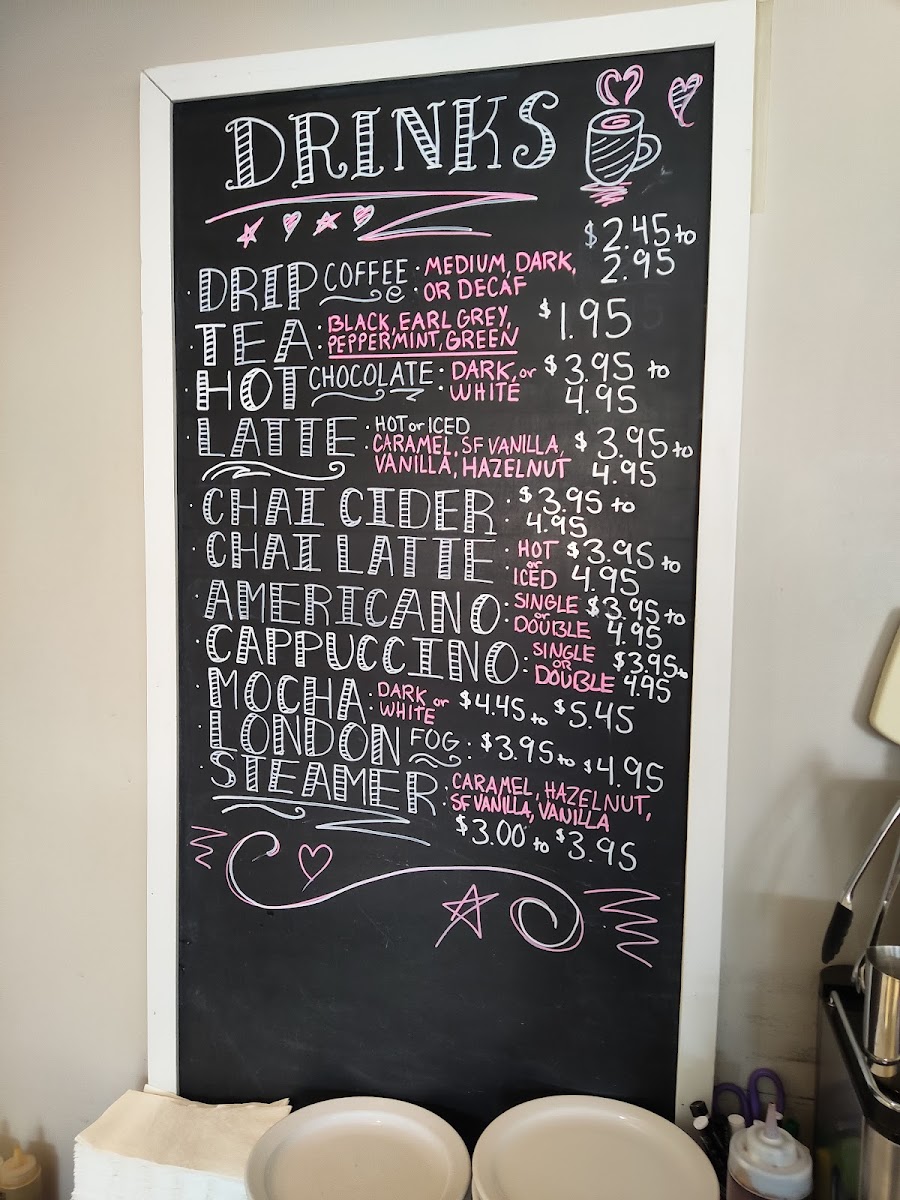 DRINKS
· DRIP COFFEE · MEDIUM, DARK, OR DECAF $2.45 to 2.95
· TEA · BLACK, EARL GREY, PEPPERMINT, GREEN $1.95
· HOT CHOCOLATE : DARK, or WHITE $3.95 to 4.95
· LATTE · HOT or ICED
CARAMEL, SF VANILLA, VANILLA, HAZELNUT $3.95 to 4.95
· CHAI CIDER : $3.95 to 4.95
· CHAI LATTE : HOT or ICED $3.95 to 4.95
· AMERICANO : SINGLE or DOUBLE $3.95 to 4.95
· CAPPUCCINO : SINGLE OR DOUBLE $3.95 to 4.95
· MOCHA : DARK or WHITE $4.45 to $5.45
· LONDON FOG : $3.95 to $4.95
· STEAMER : CARAMEL, HAZELNUT, SF VANILLA, VANILLA
$3.00 to $3.95